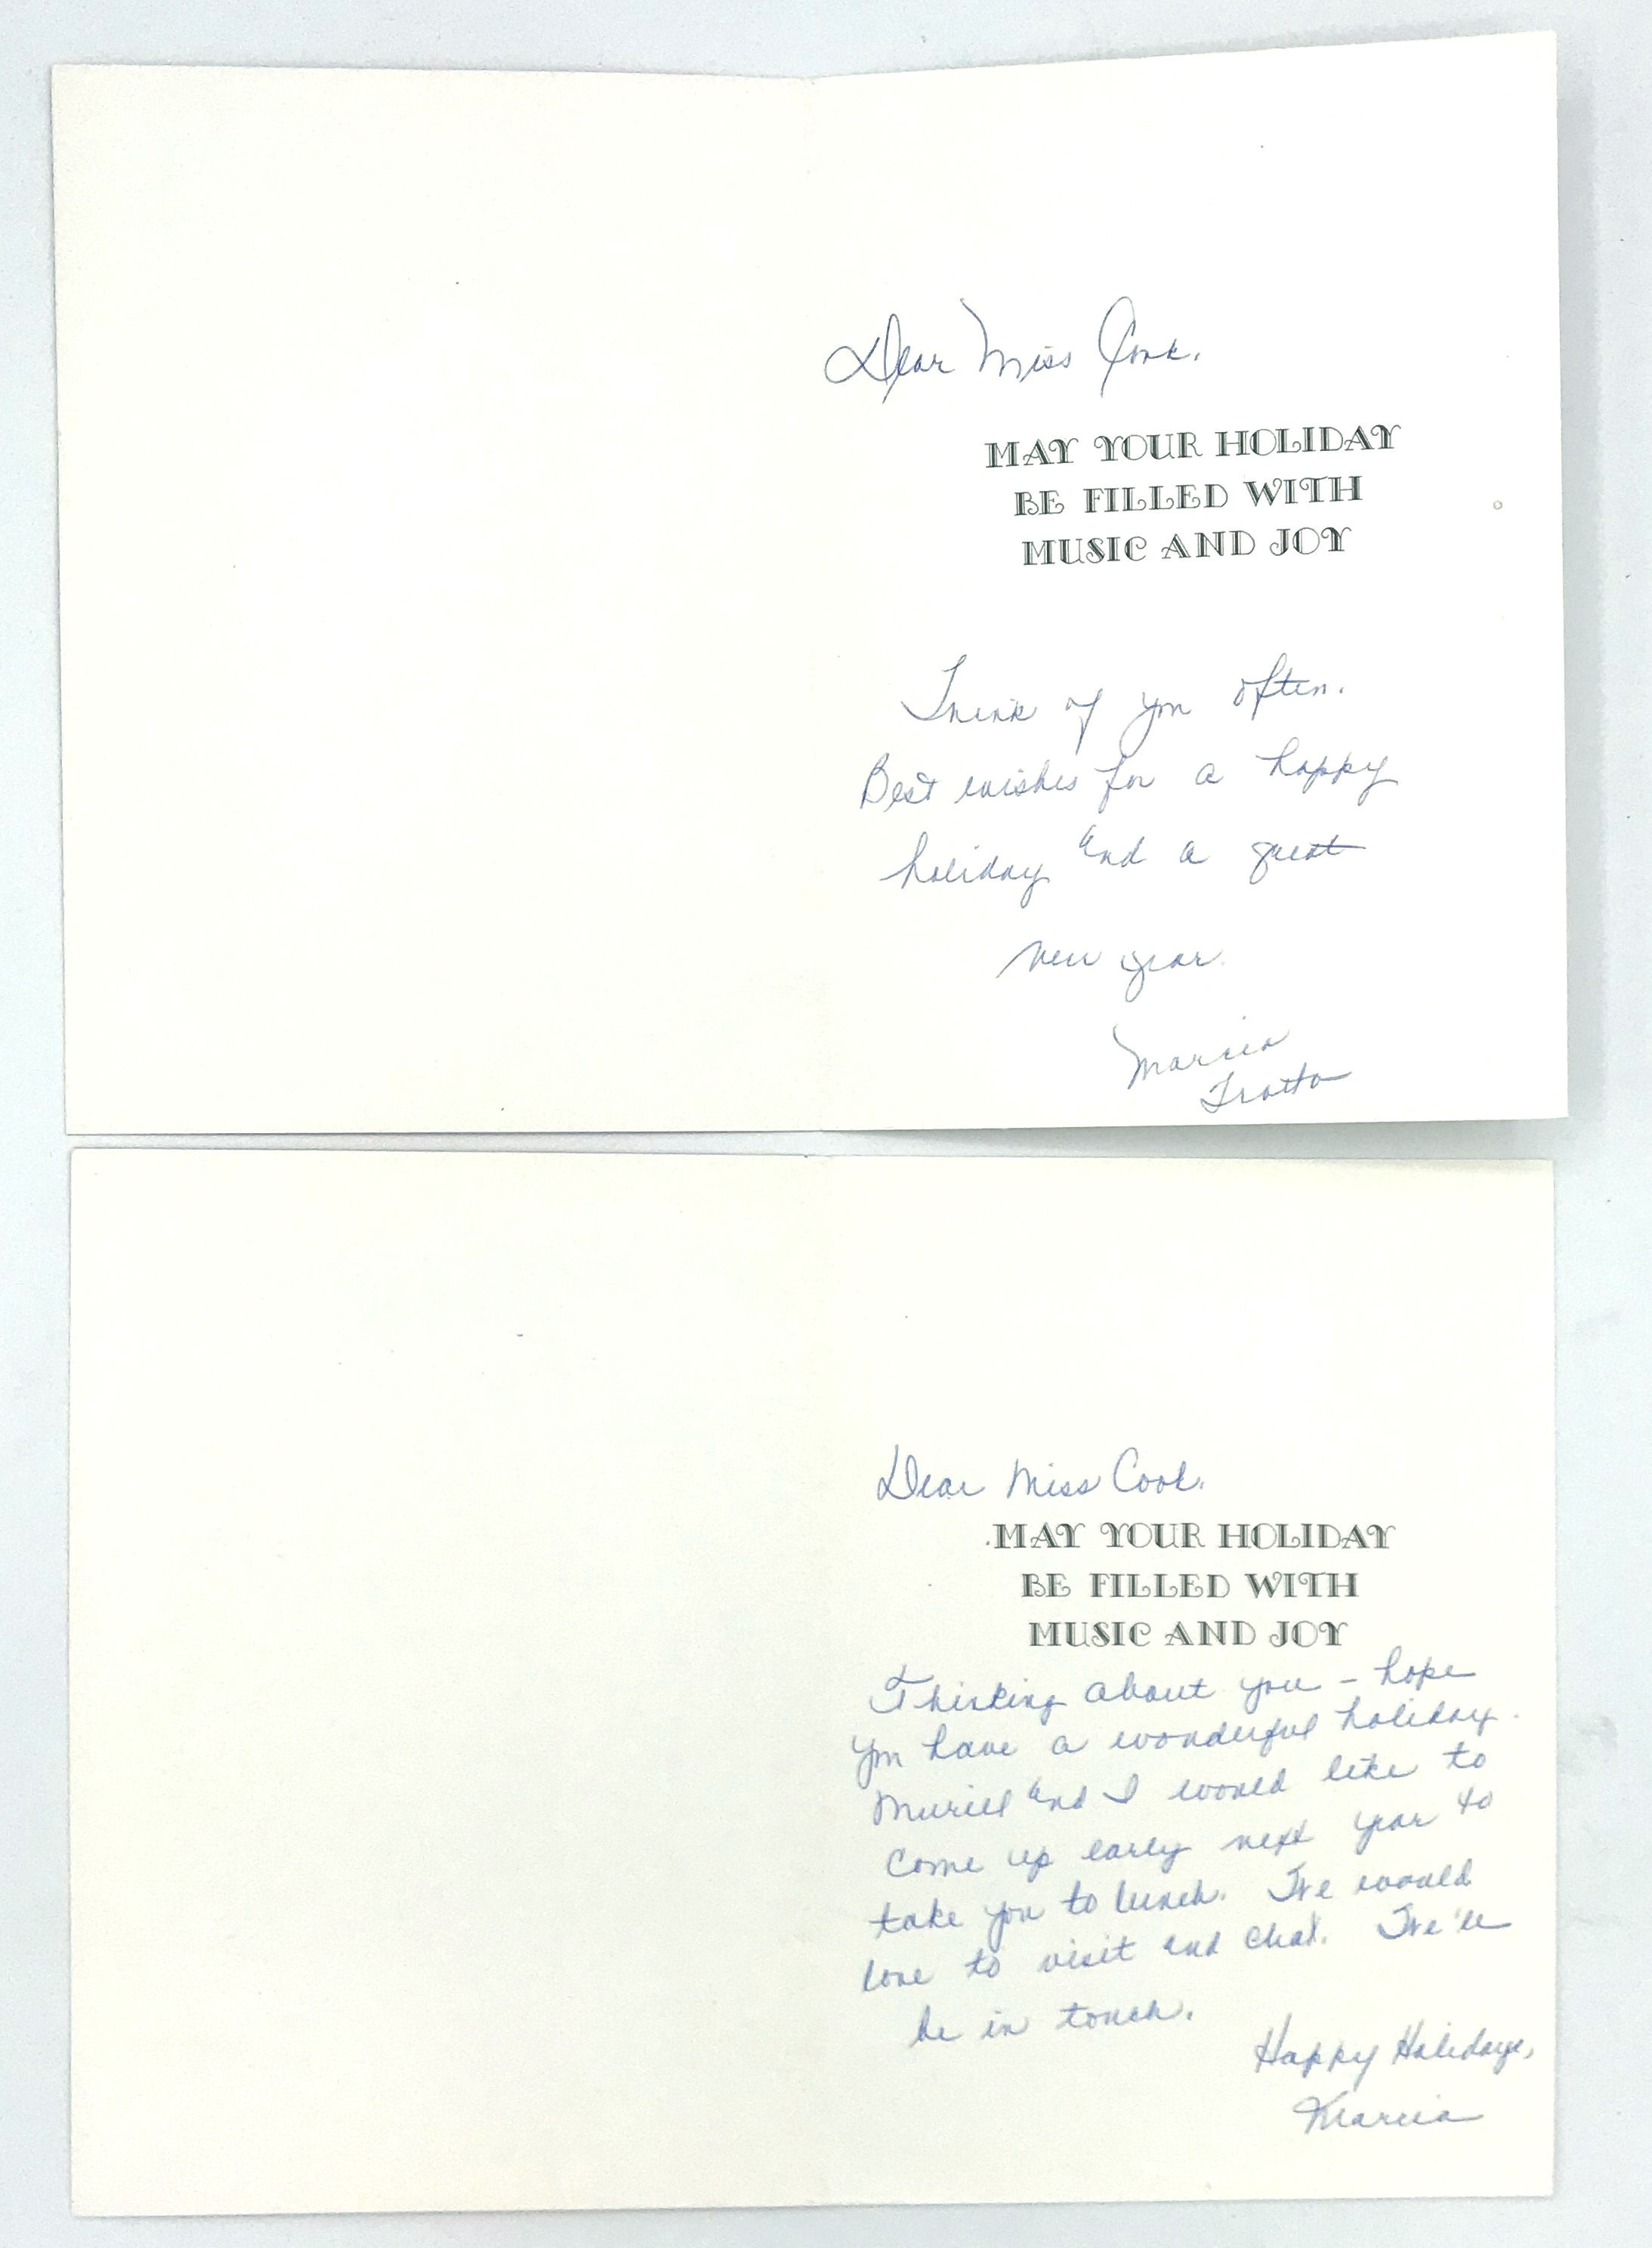 Dear Miss Cook,
MAY YOUR HOLIDAY
BE FILLED WITH
MUSIC AND JOY
Think of you often.
Best wishes for a happy
holiday and a great
new year.
Marcia
Trotta
Dear Miss Cook,
MAY YOUR HOLIDAY
BE FILLED WITH
MUSIC AND JOY
Thinking about you – hope
you have a wonderful holiday.
Muriel and I would like to
come up early next year to
take you to lunch. We would
love to visit and chat. We'll
be in touch.
Happy Holidays,
Marcia